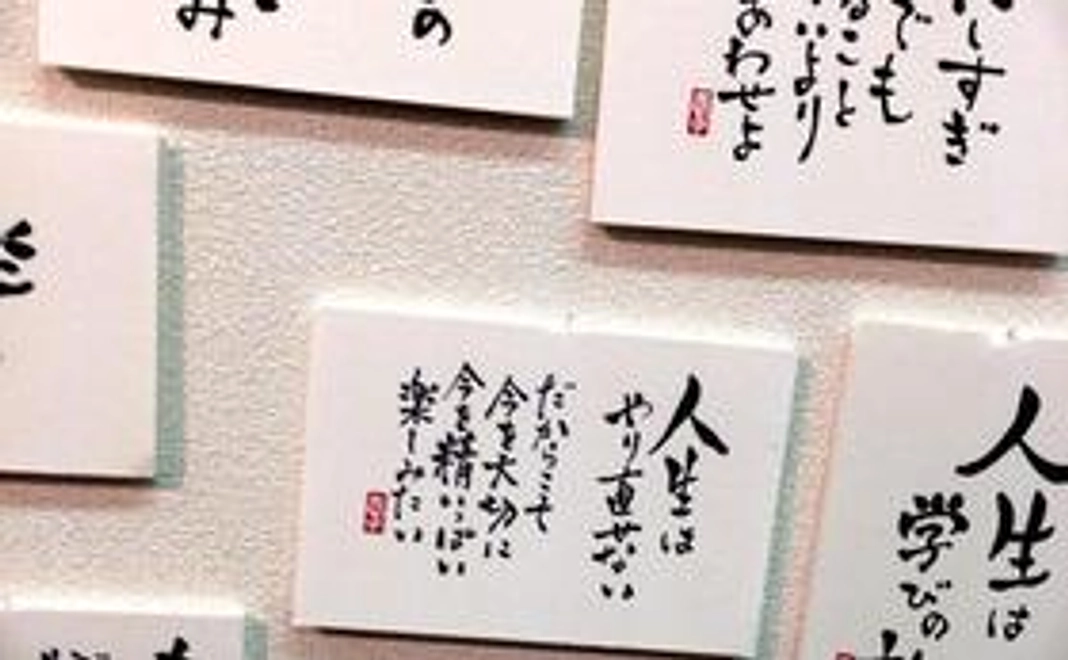 み
の
しすぎ
でも
ること
いより
あわせよ
人生は
やり直せない
だからこそ
今を大切に
今を精いっぱい
楽しみたい
人生は
学びの